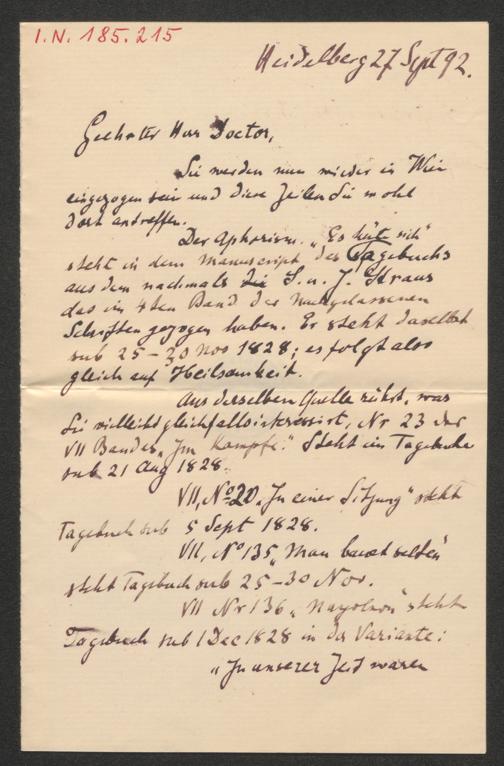 I.N. 185.215
Heidelberg 27 Sept 92.
Geehrter Herr Doctor,
Sie werden nun wieder in Wien
eingezogen sein und diese Zeilen Sie wohl
dort antreffen.
Der Aphorism. „Es hüte sich“
steht in dem Manuscript des Tagebuchs
aus dem nachmals die S. u. J. Straus
das im 4ten Band der nachgelassenen
Schriften gezogen haben. Er steht daselbst
sub 25–30 Nov 1828; es folgt also
gleich auf Heilsamkeit.
Aus derselben Quelle rührt, was
Sie vielleicht gleichfalls interessirt, Nr 23 des
VII Bandes „Im Kampfe.“ Steht im Tagebuche
sub 21 Aug 1828.
VII, No 20 „In einer Sitzung“ steht
Tagebuch sub 5 Sept 1828.
VII, No 135 „Man baut selten“
steht Tagebuch sub 25–30 Nov.
VII Nr 136 „Napoleon“ steht
Tagebuch sub 1 Dec 1828 in der Variante:
„In unserer Zeit waren